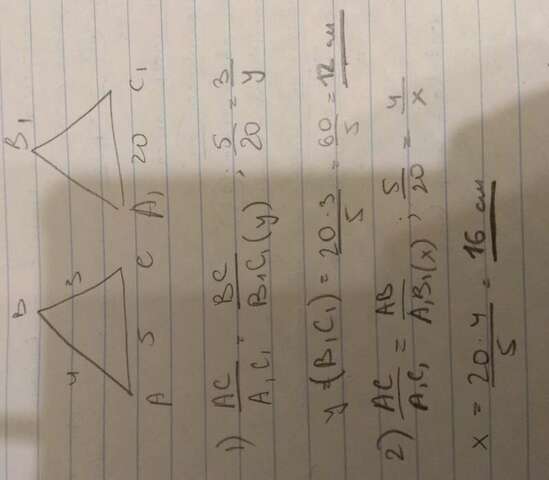 B B₁
4 3
A 5 C A₁ 20 C₁
1) AC/A₁C₁ = BC/B₁C₁(y) ; 5/20 = 3/y
y = (B₁C₁) = 20·3/5 = 60/5 = 12 см
2) AC/A₁C₁ = AB/A₁B₁(x) ; 5/20 = 4/x
x = 20·4/5 = 16 см